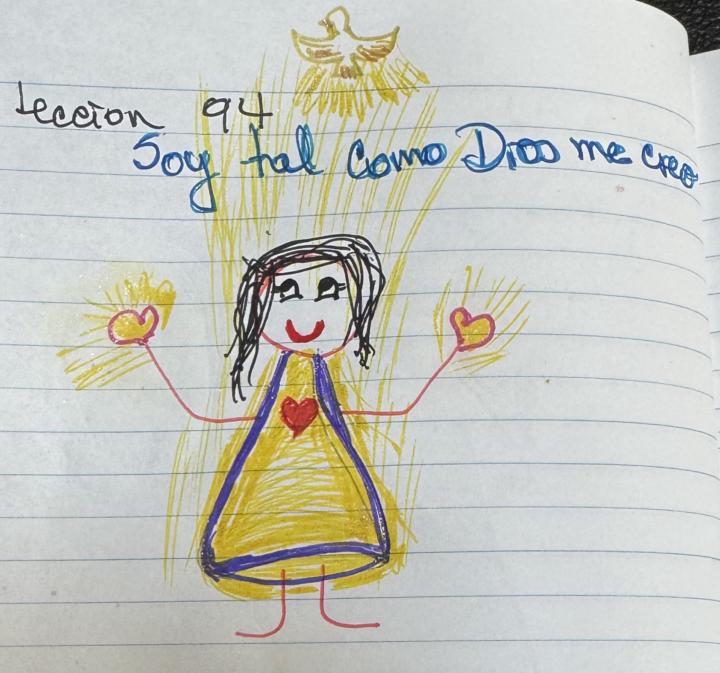 Leccion 94
Soy tal como Dios me creo